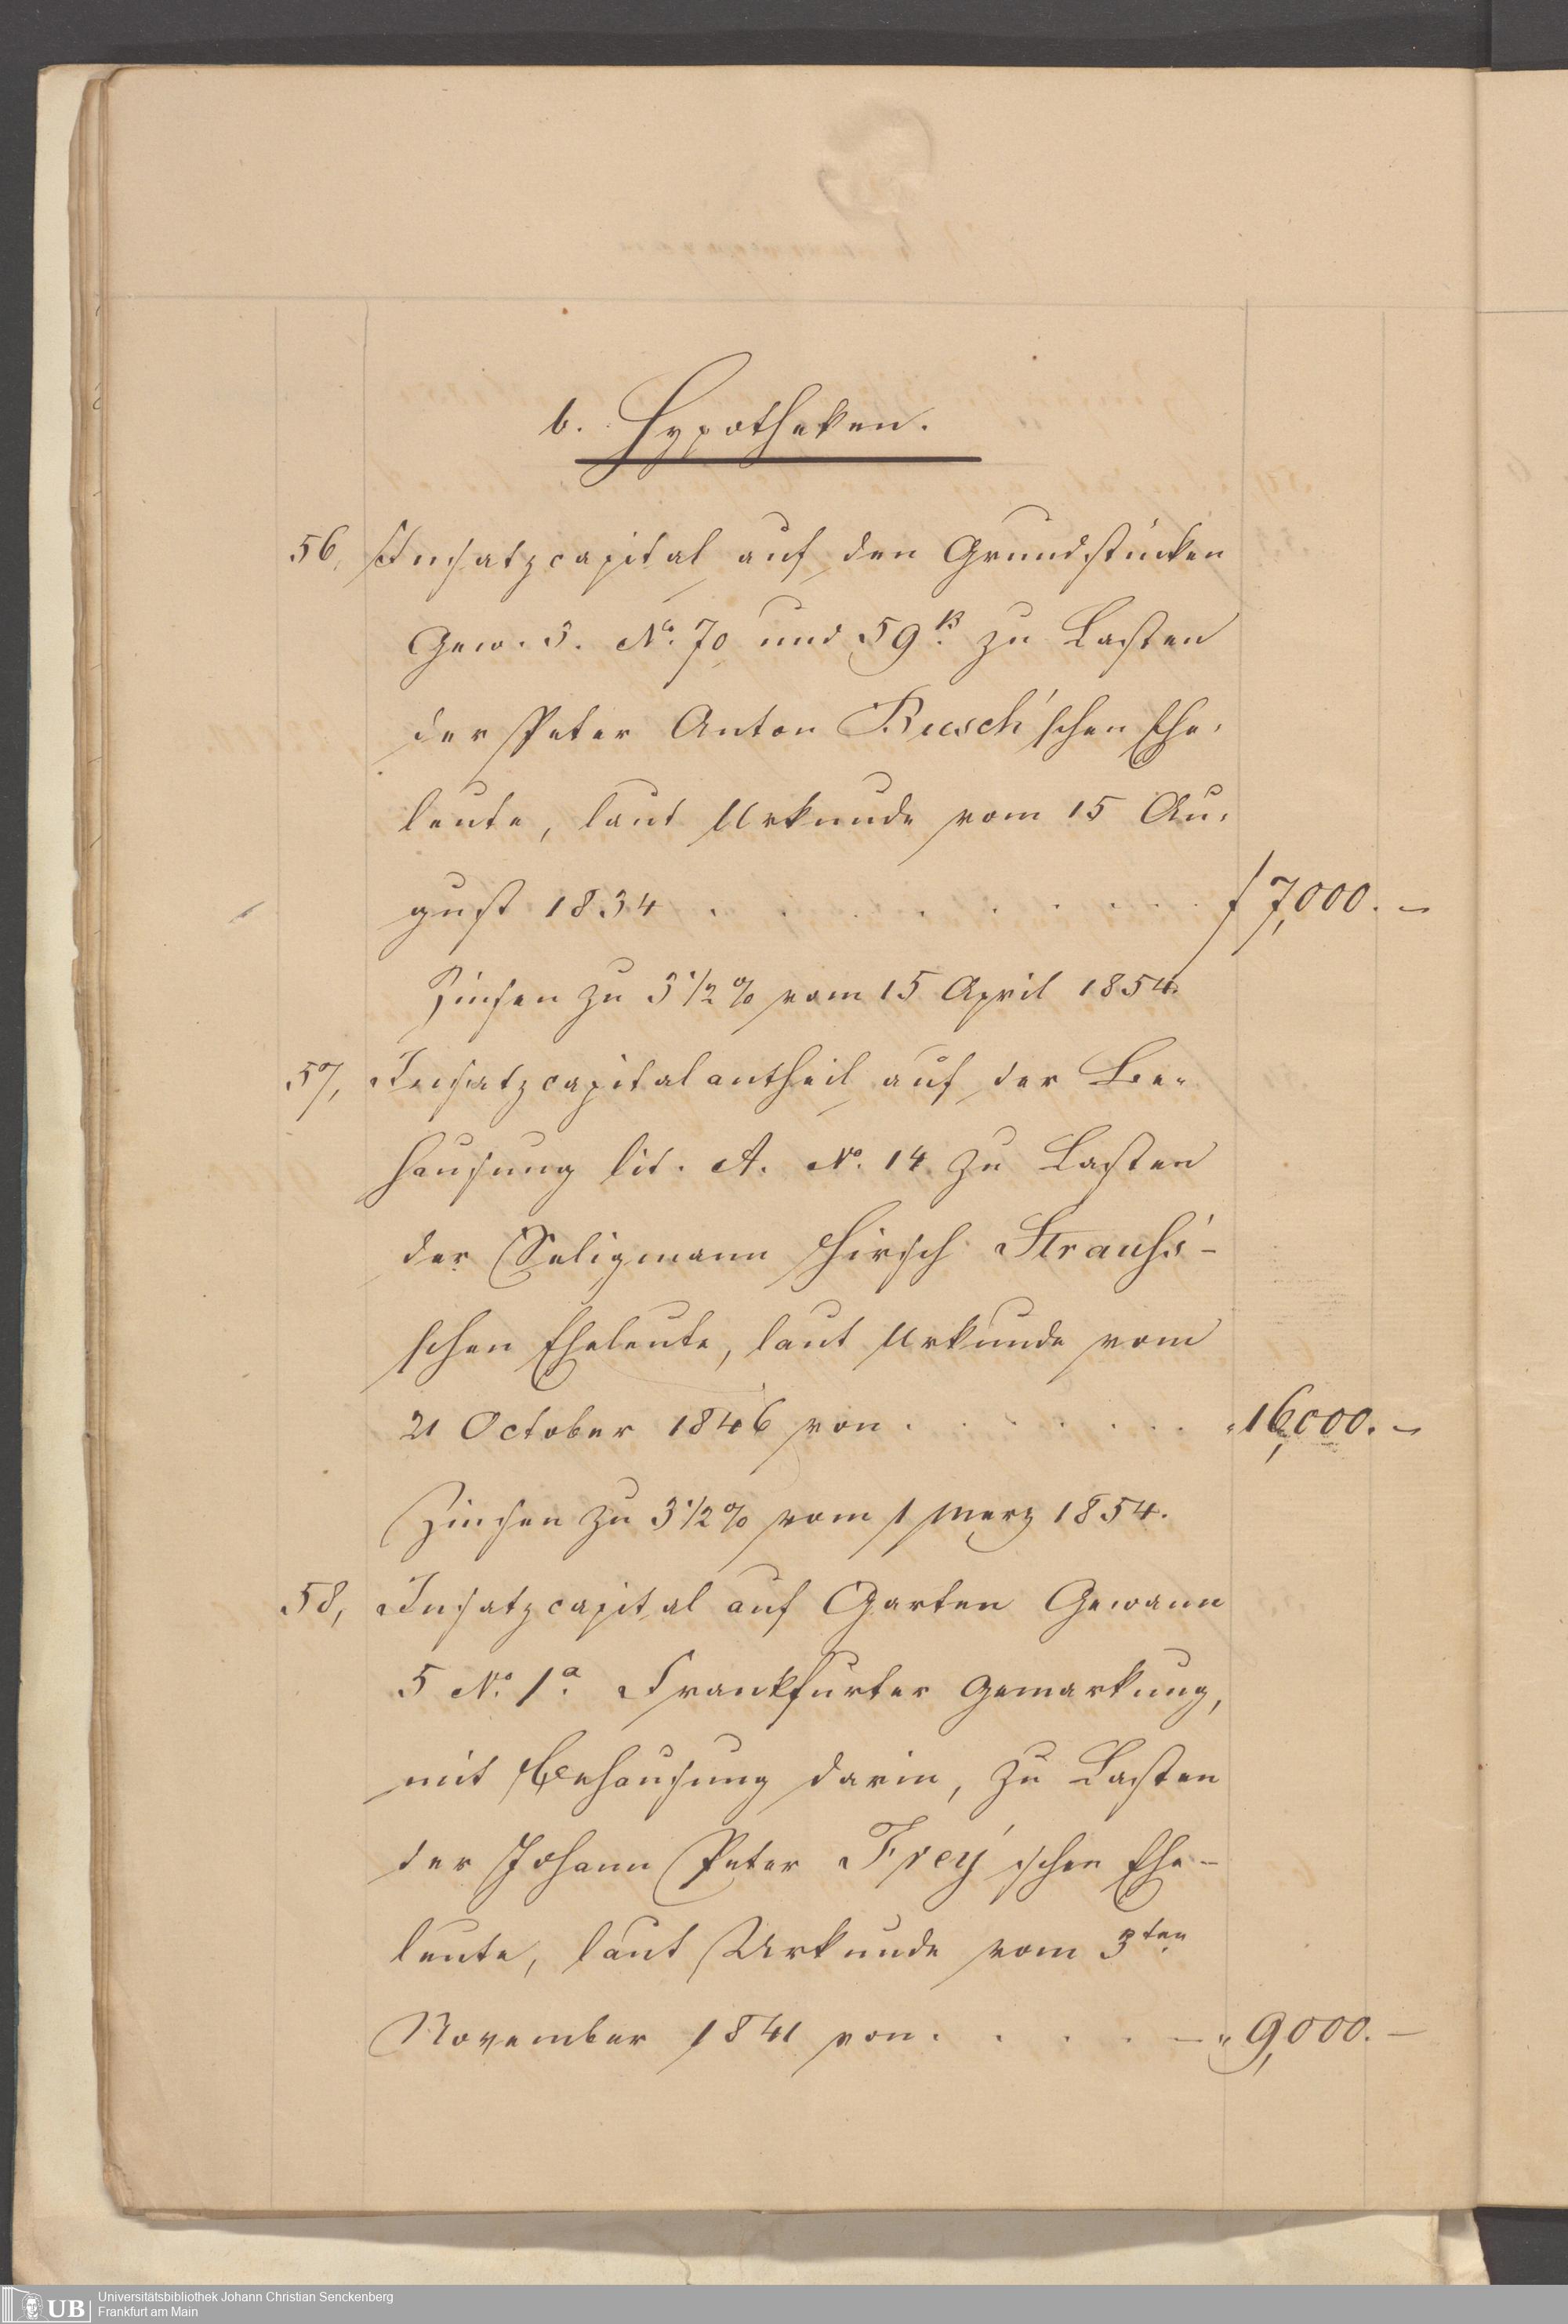 b. Hypotheken.
56, Insatzcapital auf den Grundstücken
Gew. 5. No. 70 und 59 B. zu Lasten
der Peter Anton Busch'schen Ehe-
leute, laut Urkunde vom 15 Au-
gust 1834 . . . . . . . . . f 7,000. –
Zinsen zu 3 1/2 % vom 15 April 1854.
57, Insatzcapitalantheil auf der Be-
hausung lit. A. No. 14 zu Lasten
der Seligmann Hirsch Strauß'-
schen Eheleute, laut Urkunde vom
21 October 1846 von . . . . . . . " 16,000. –
Zinsen zu 3 1/2 % vom 1 Merz 1854.
58, Insatzcapital auf Garten Gewann
5 No. 1a. Frankfurter Gemarkung,
mit Behausung darin, zu Lasten
der Johann Peter Frey'schen Ehe-
leute, laut Urkunde vom 3ten
November 1841 von . . . . . – " 9,000. –
Universitätsbibliothek Johann Christian Senckenberg
UB Frankfurt am Main